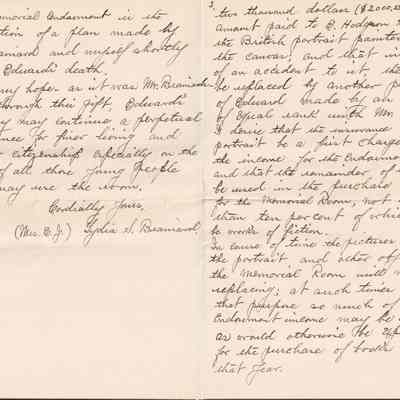 morial Endowment in the
tion of a plan made by
ainard and myself shortly
Edward's death.
my hope as it was Mr. Brainard's
through this gift, Edward's
y may continue a perpetual
nce for finer living and
r citizenship especially on the
of all those young people
may use the room.
Cordially yours,
(Mrs. E. J.) Lydia S. Brainard.
3.
two thousand dollars ($2000.00
amount paid to E. Hodgson
the British portrait painter
the canvas; and that in
of an accident to it, the
be replaced by another p
of Edward made by an
of equal rank with Mr.
I desire that the insurance
portrait be a first charge
the income for the Endowm
and that the remainder of
be used in the purchase
for the Memorial Room, not
than ten per cent of whic
be works of fiction.
In course of time the pictures
the portrait, and other off
the Memorial Room will
replacing; at such times
that purpose so much of
Endowment income may be
as would otherwise be
for the purchase of books
that year.